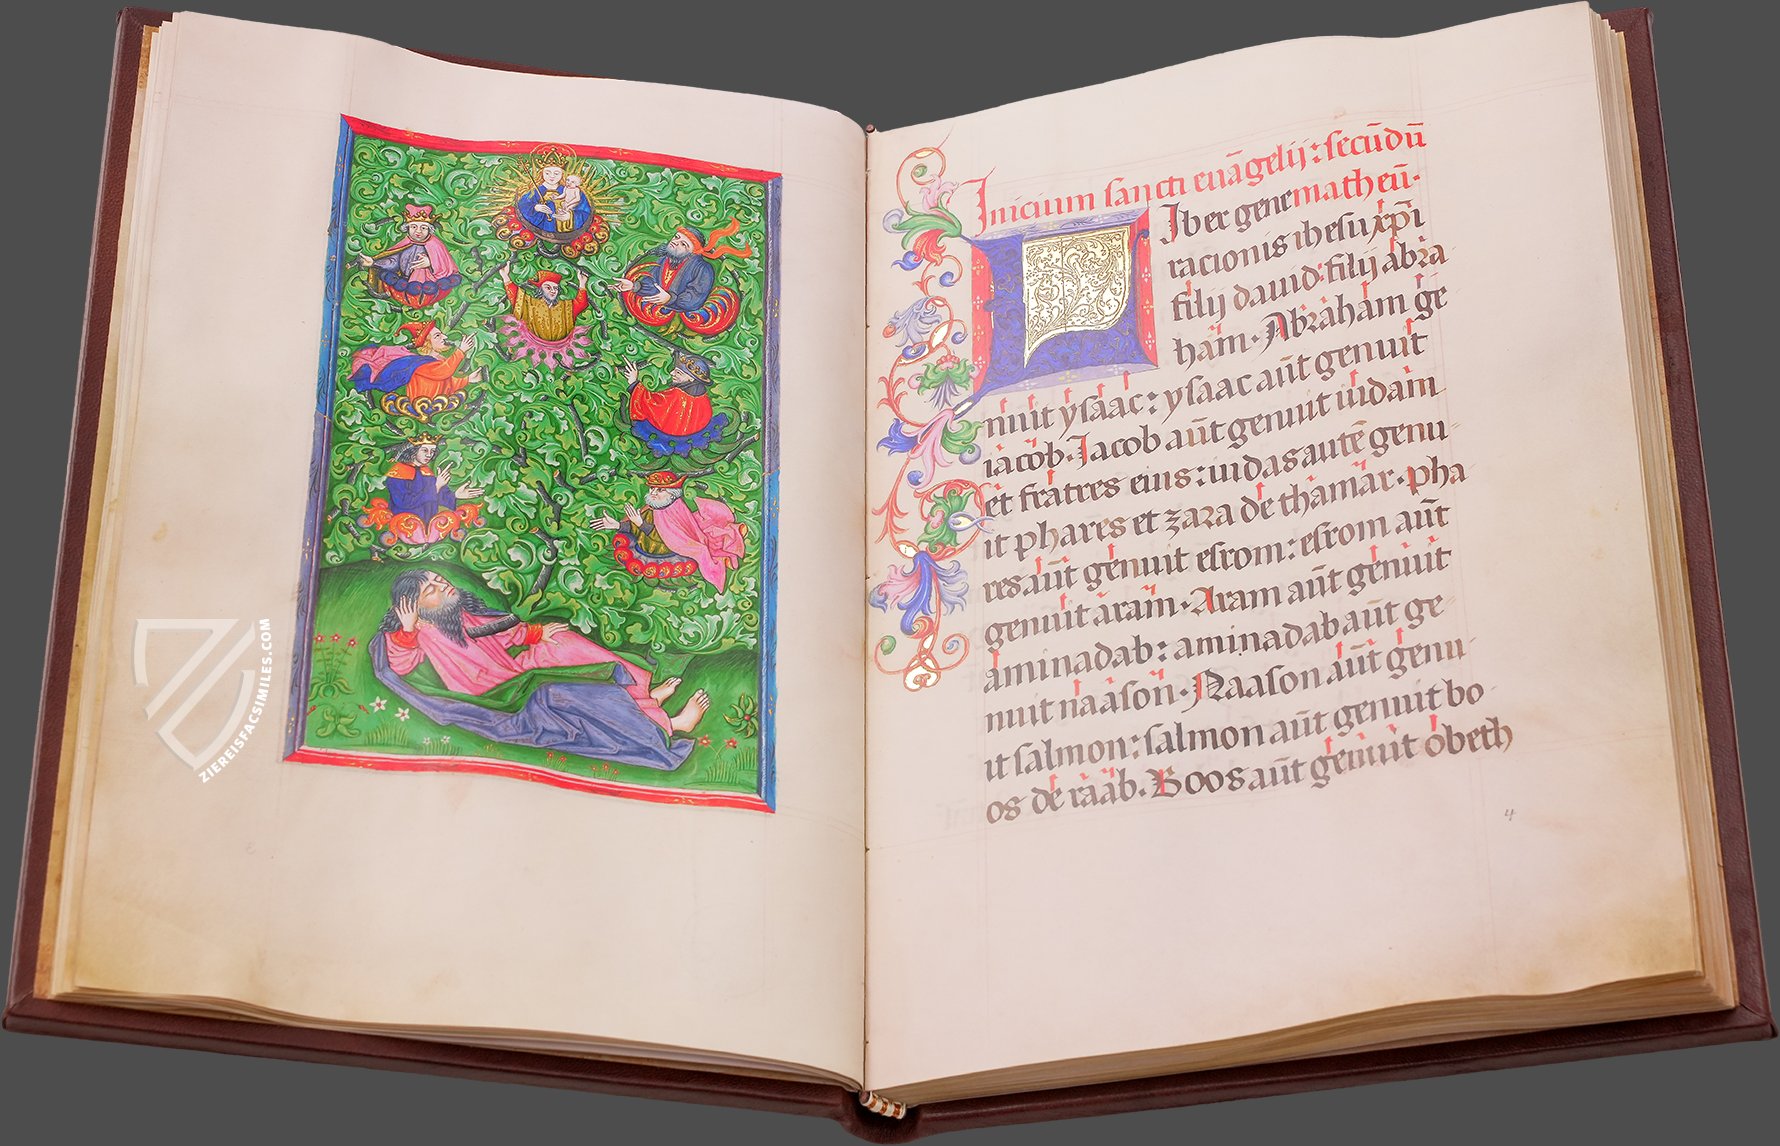 ZIEREISFACSIMILES.COM
Inicium sancti euāgelij : secūdū
matheū·
Liber gene
racionis ihesu xp̄i
filij dauid : filij abra
ham · Abraham ge
nuit ysaac : ysaac aūt genuit
iacob · Jacob aūt genuit iudam
et fratres eius : iudas autē genu
it phares et zara de thamar · pha
res aūt genuit esrom : esrom aūt
genuit aram · Aram aūt genuit
aminadab : aminadab aūt ge
nuit naason · Naason aūt genu
it salmon : salmon aūt genuit bo
os de raab · Boos aūt genuit obeth
4